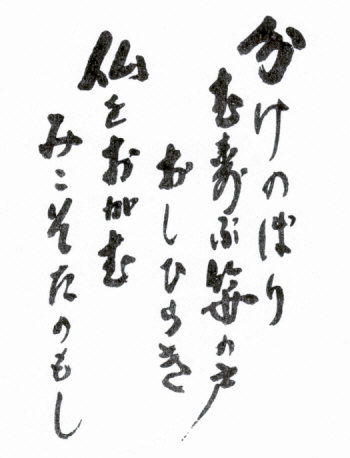 分けのぼり
むすぶ笹の戸
おしひらき
仏をおがむ
みこそたのもし